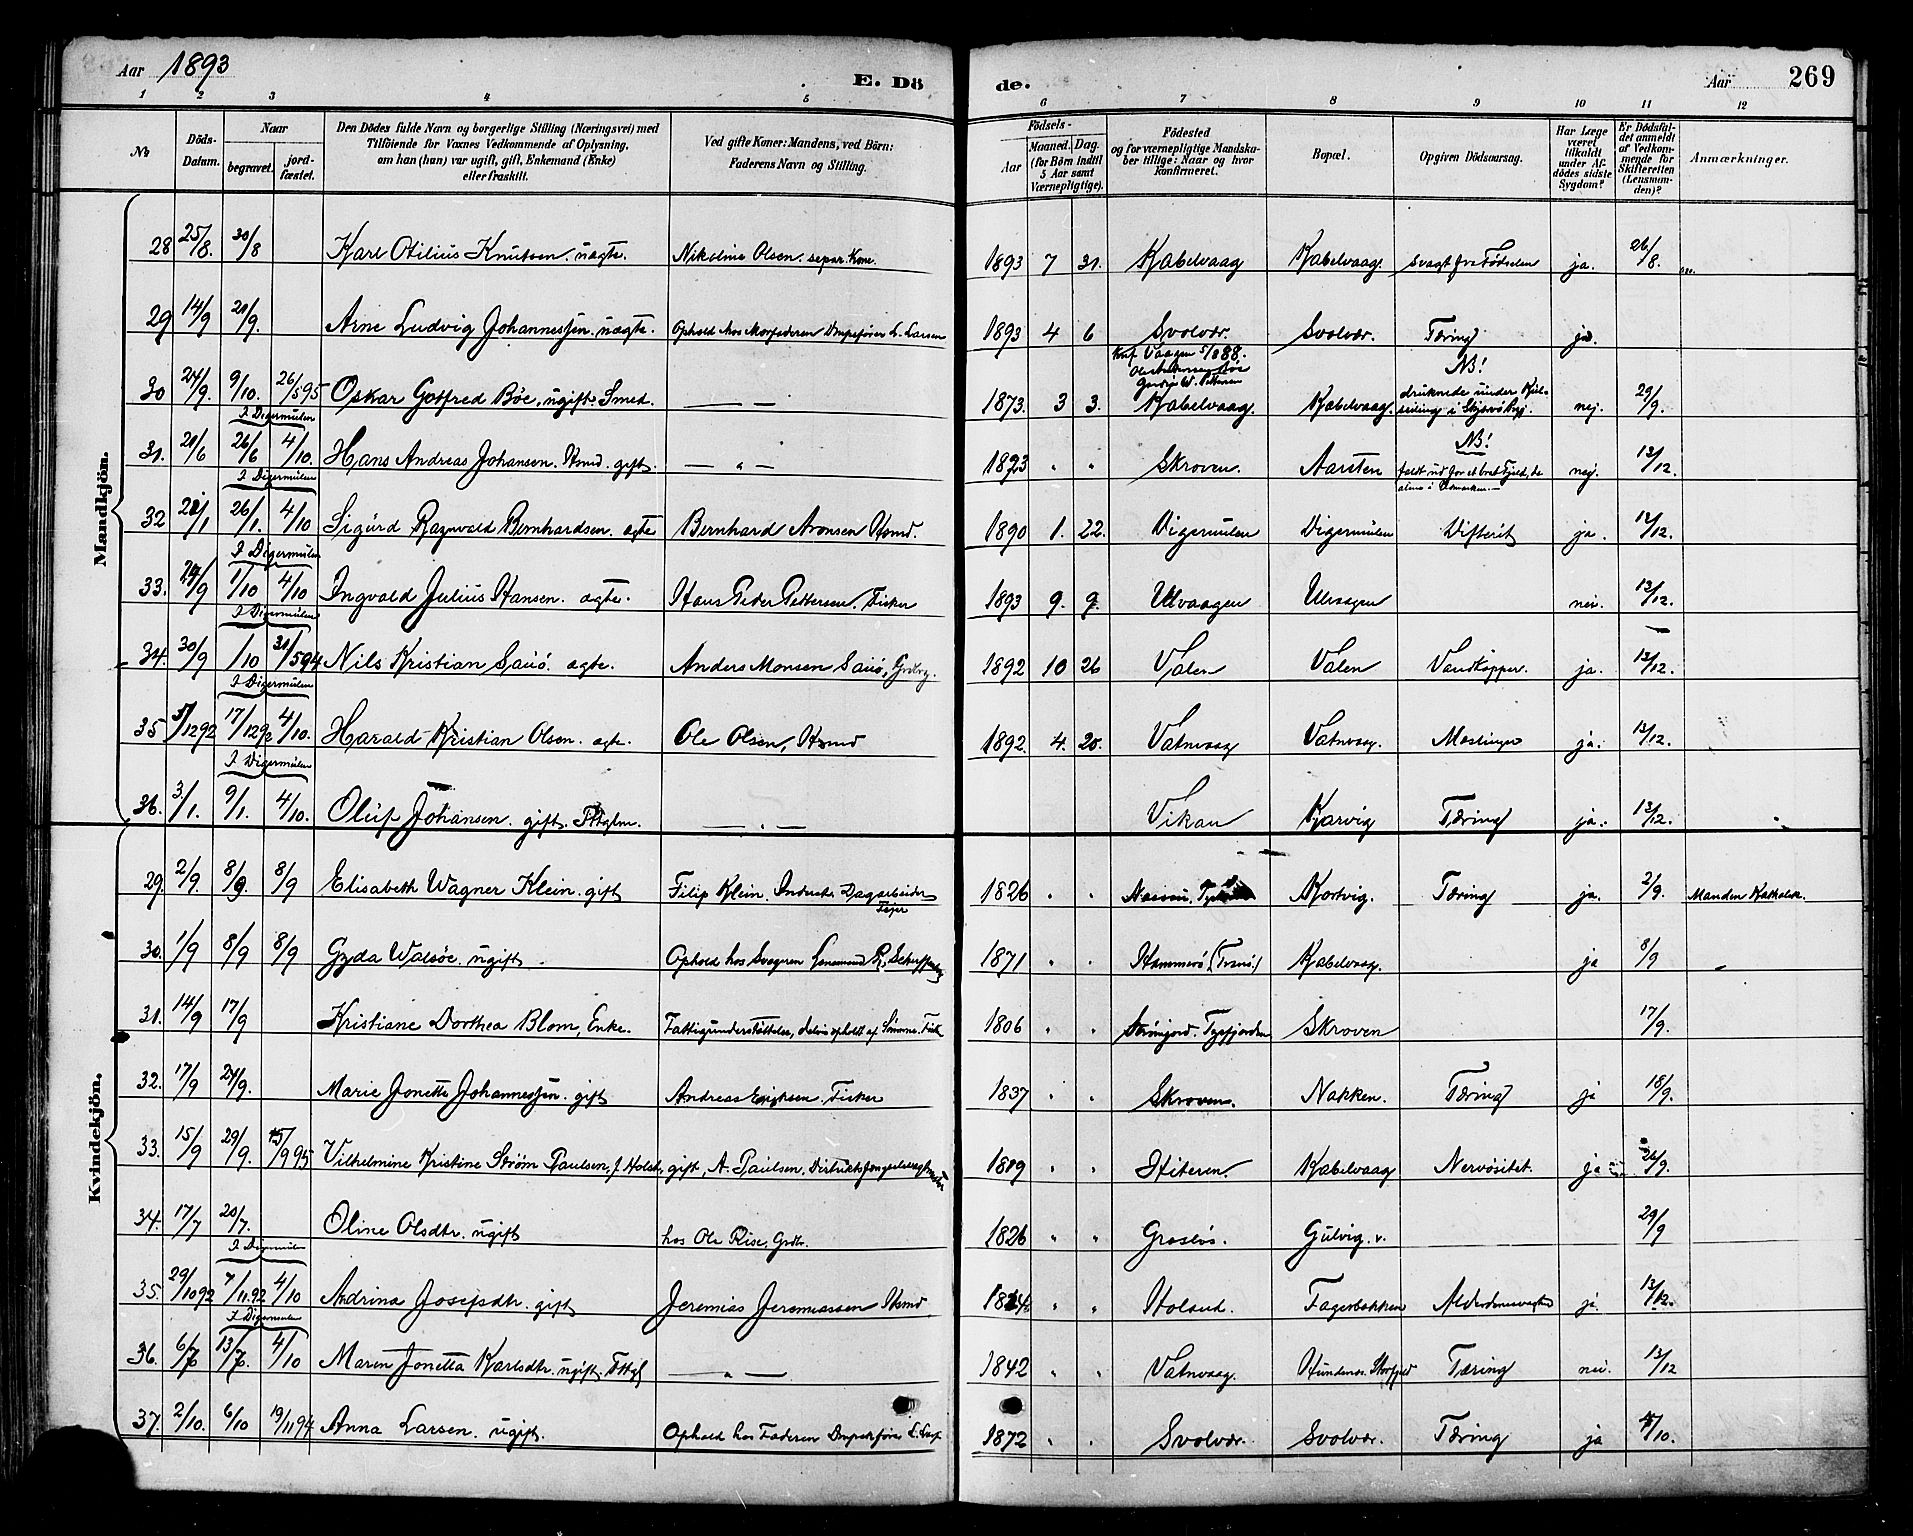 Aar 1893
E. Dö de.
Aar
269
1 2 3 4 5 6 7 8 9 10 11 12
No
Döds-Datum.
Naar
begravet.
jord-fæstet.
Den Dödes fulde Navn og borgerlige Stilling (Næringsvei) med
Tilföiende for Voxnes Vedkommende af Oplysning,
om han (hun) var ugift, gift, Enkemand (Enke)
eller fraskilt.
Ved gifte Koner: Mandens, ved Börn:
Faderens Navn og Stilling.
Födsels-
Aar
Maaned. Dag.
(for Börn indtil
5 Aar samt
Værnepligtige).
Födested
og for værnepligtige Mandska-
ber tillige: Naar og hvor
konfirmeret.
Bopæl.
Opgiven Dödsaarsag.
Har Læge
været
tilkaldt
under Af-
dödes sidste
Sygdom?
Er Dödsfal-
det anmeldt
af Vedkom-
mende for
Skifteretten
(Lensman-
den)?
Anmærkninger.
Mandkjön.
28 25/8. 30/8 Karl Otilius Knutsen. uægte. Nikoline Olsen. separ. Kone. 1893 7 31. Kabelvaag Kabelvaag. Svagt fra Födselen ja. 26/8.
29 14/9 20/9. Arne Ludvig Johannessen. uægte. Ophold hos Morfaderen L. Larsen 1893 4 6 Svolvær. Svolvær. Tæring ja.
Konf. Vaagen 5/8 88.
30 24/9. 9/10. 26/5 95 Oskar Gotfred Böe, ugift Smed. — — 1873. 3 3. Kabelvaag. Kabelvaag. NB! druknede under Kul- seiling i nej. 29/9.
I Digermulen
31. 21/6 26/6 4/10. Hans Andreas Johansen. Husmd. gift. — " — 1893 " " Skroven. Aarsten NB! faldt ud for et brat Fjeld, da nej. 12/12.
I Digermulen
32 21/1 26/1. 4/10 Sigurd Ragnvald Bernhardsen. ægte Bernhard Aronsen Husmd. 1890 1. 22. Digermulen Digermulen Difterit ja. 12/12.
I Digermulen
33. 24/9 1/10 4/10 Ingvald Julius Hansen. ægte. Hans Peder Pettersen. Fisker 1893 9. 9. Ulvaagen Ulvaagen nei. 12/12.
I Digermulen
34. 30/9 1/10 31/5 94 Nils Kristian Sauö. ægte. Anders Monsen Sauö, Grdbrg. 1892 10 26 Valen Valen Vandkopper. ja. 13/12.
I Digermulen
35 5/12 92 17/12 92 4/10. Harald Kristian Olsen. ægte. Ole Olsen, Husmd 1892. 4. 20. Vatnvaag Vatnvaag. Meslinger ja. 13/12.
I Digermulen
36. 3/1. 9/1. 4/10. Oluf Johansen. gift. Fttglm. — " — Vikan Karvig Tæring ja. 13/12.
Kvindekjön.
29. 2/9. 8/9 8/9 Elisabeth Wagner Klein. gift Filip Klein. Dagarbeider 1826 " " Nassau, Kortvig. Tæring ja. 2/9. Manden Katholik.
30. 1/9 8/9 8/9 Gyda Walsöe. ugift Ophold hos Svogeren 1871 " " Hammerö, (Tranö) Kabelvaag. ja 8/9
31. 14/9 17/9 Kristiane Dorthea Blom, Enke. Fattigunderstöttelse, delvis opholdt af Sönnen. Fisk. 1806 " " Tysfjorden Skroven 17/9.
32. 17/9 24/9. Marie Jonette Johannessen. gift Andreas Eriksen. Fisker 1837 " " Skroven. Nakken. Tæring ja 18/9.
33. 15/9 29/9. 15/9 95 Vilhelmine Kristine Ström Paulsen, f. Holst, gift, A. Paulsen, Distriktsfængselsvagtmester 1819 " " Hiteren Kabelvaag Nervösitet. ja 26/9.
34. 17/7 20/7. Oline Olsdtr. ugift hos Ole Risc. Grdbr. 1826 " " Grosløs. Gulvig. v. 29/9
I Digermulen
35. 29/10 92 7/11. 92 4/10 Andrina Josefsdtr. gift Jeremias Jeremiassen Husmd 1824 " " Holand. Fagerbakken Alderdomssvaghed ja. 13/12.
I Digermulen
36. 6/6 13/6. 4/10 Maren Jonetta Karlsdtr. ugift. Fttgl — " — 1842 " " Vatnvaag. Storfjeld Tæring nei. 13/12
37. 2/10. 6/10 19/11 94 Anna Larsen. ugift. Ophold hos Faderen 1872 " " Svolvær. Svolvær. Tæring ja 4/10.